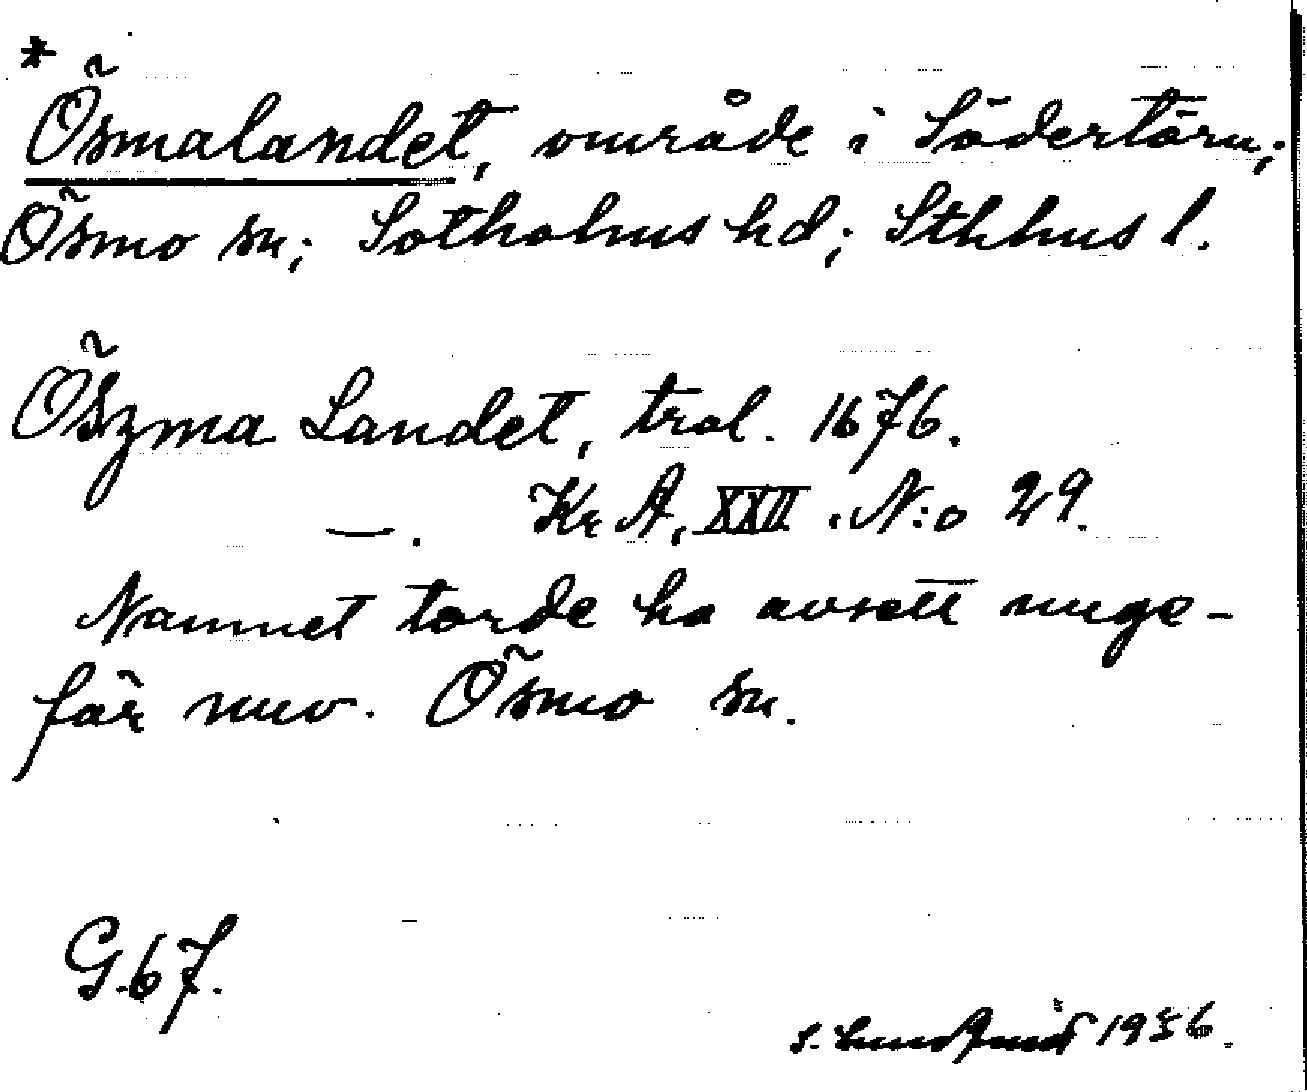 *
Ösmalandet, område i Södertörn;
Ösmo sn; Sotholms hd; Sthlms l.
Öszma Landet, trol. 1676.
—. Kr A, XXII. N:o 29.
Namnet torde ha avsett unge-
fär nuv. Ösmo sn.
G.67.
S. 1956.